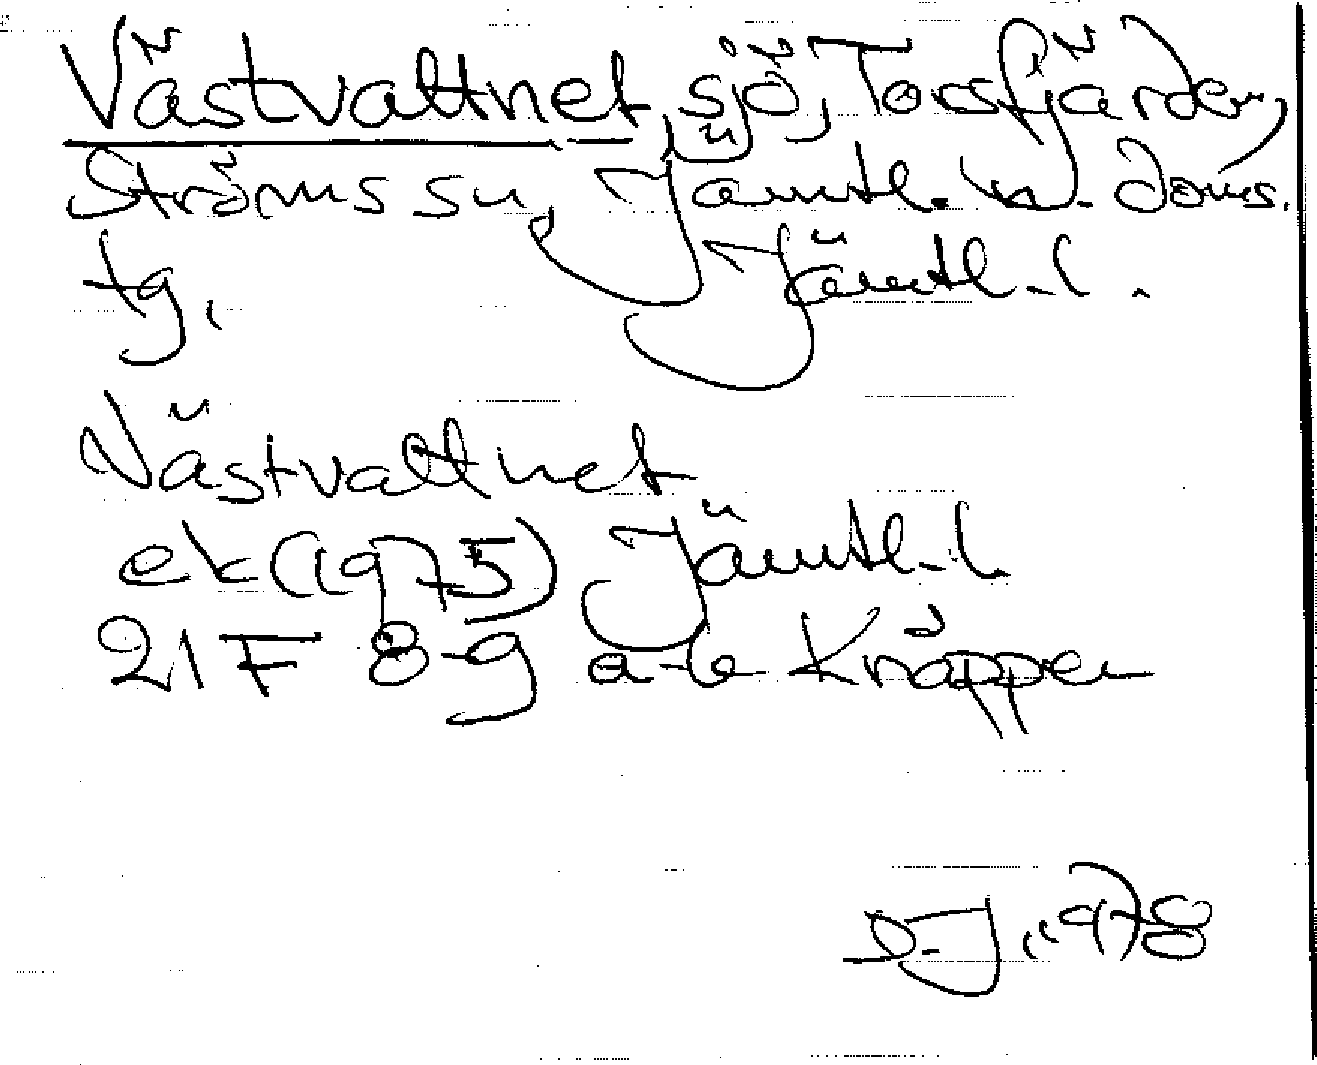 Västvattnet, sjö, Torsfjärden,
Ströms sn, Jämtl. n. doms.
tg. Jämtl. l.
Västvattnet
ek (1975) Jämtl. l.
21 F 8-9 a-b Knäppen
1978